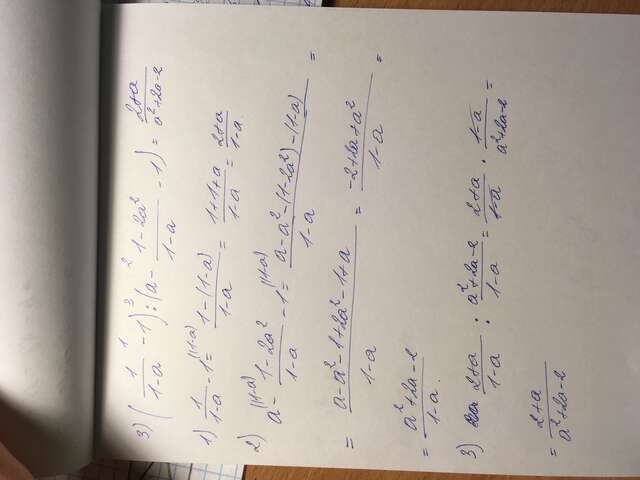 3) (1/(1-a) - 1) : (a - (1-2a²)/(1-a) - 1) = (2+a)/(a²+2a-2)
1) 1/(1-a) - 1 = (1-(1-a))/(1-a) = (1+1+a)/(1-a) = (2+a)/(1-a)
2) a - (1-2a²)/(1-a) - 1 = (a-a²-(1-2a²)-(1-a))/(1-a) =
= (a-a²-1+2a²-1+a)/(1-a) = (-2+2a+a²)/(1-a) =
= (a²+2a-2)/(1-a).
3) (2+a)/(1-a) : (a²+2a-2)/(1-a) = (2+a)/(1-a) · (1-a)/(a²+2a-2) =
= (2+a)/(a²+2a-2)